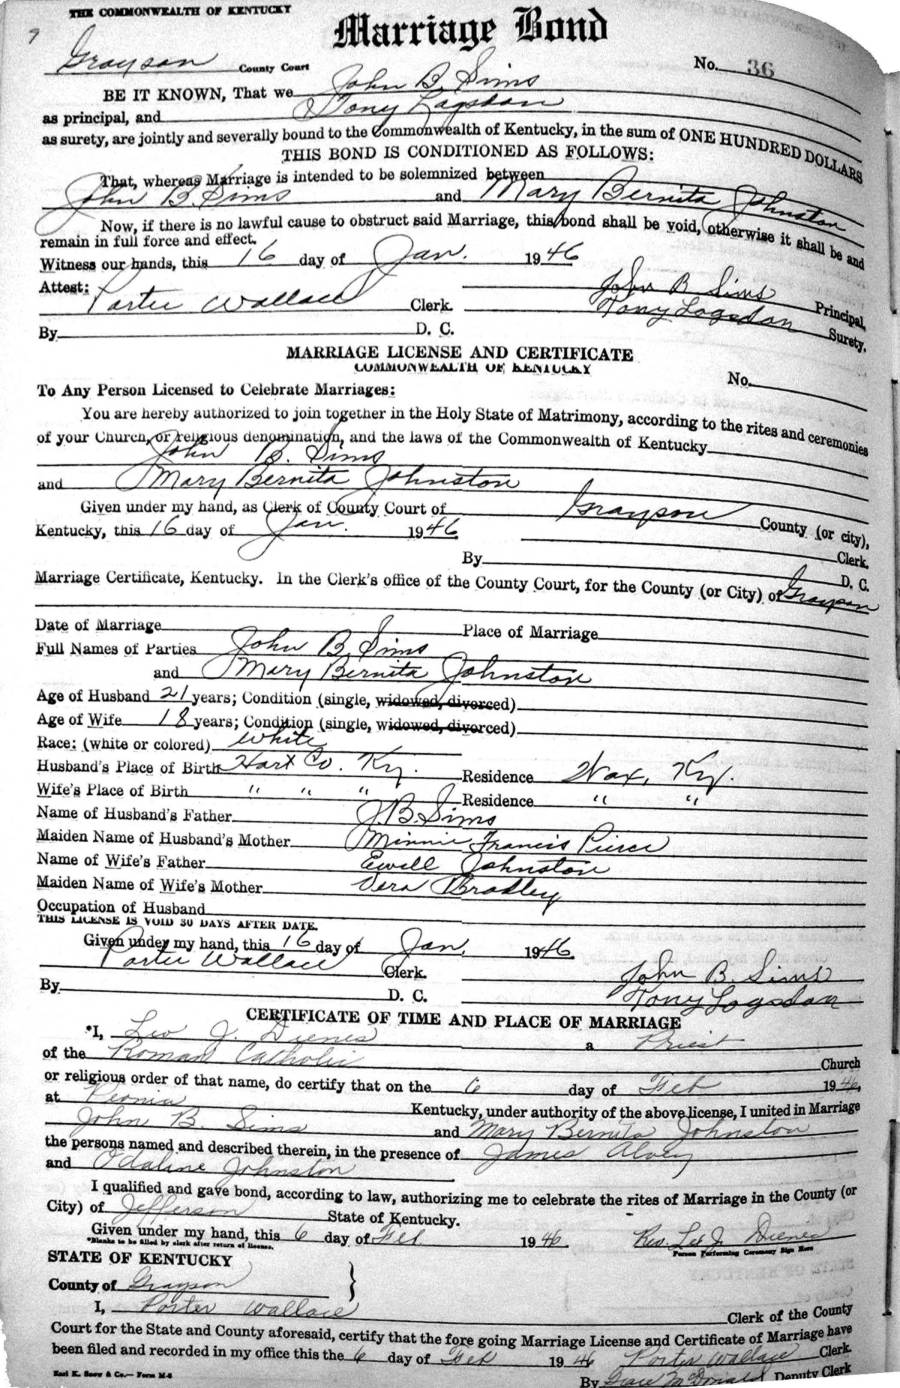 THE COMMONWEALTH OF KENTUCKY
Marriage Bond
Grayson County Court
No. 36
BE IT KNOWN, That we John B. Sims
as principal, and & Tony Logsdon
as surety, are jointly and severally bound to the Commonwealth of Kentucky, in the sum of ONE HUNDRED DOLLARS
THIS BOND IS CONDITIONED AS FOLLOWS:
That, whereas Marriage is intended to be solemnized between
John B. Sims and Mary Bernita Johnston
Now, if there is no lawful cause to obstruct said Marriage, this bond shall be void, otherwise it shall be and
remain in full force and effect.
Witness our hands, this 16 day of Jan. 1946
Attest: John B Sims Principal,
Porter Wallace Clerk. Tony Logsdon Surety.
By D. C.
MARRIAGE LICENSE AND CERTIFICATE
COMMONWEALTH OF KENTUCKY
No.
To Any Person Licensed to Celebrate Marriages:
You are hereby authorized to join together in the Holy State of Matrimony, according to the rites and ceremonies
of your Church, or religious denomination, and the laws of the Commonwealth of Kentucky
John B. Sims
and Mary Bernita Johnston
Given under my hand, as Clerk of County Court of Grayson County (or city),
Kentucky, this 16 day of Jan. 1946 Clerk.
By D. C.
Marriage Certificate, Kentucky. In the Clerk's office of the County Court, for the County (or City) of Grayson
Date of Marriage Place of Marriage
Full Names of Parties John B. Sims
and Mary Bernita Johnston
Age of Husband 21 years; Condition (single, widowed, divorced)
Age of Wife 18 years; Condition (single, widowed, divorced)
Race: (white or colored) White
Husband's Place of Birth Hart Co. Ky. Residence Wax, Ky.
Wife's Place of Birth " " " Residence " "
Name of Husband's Father J.B. Sims
Maiden Name of Husband's Mother Minnie Francis Pierce
Name of Wife's Father Ewell Johnston
Maiden Name of Wife's Mother Vera Bradley
Occupation of Husband
THIS LICENSE IS VOID 30 DAYS AFTER DATE.
Given under my hand, this 16 day of Jan. 1946
Porter Wallace Clerk. John B. Sims
By D. C. Tony Logsdon
CERTIFICATE OF TIME AND PLACE OF MARRIAGE
*I, Leo J. Dienes a Priest
of the Roman Catholic Church
or religious order of that name, do certify that on the 6 day of Feb 1946,
at Peonia Kentucky, under authority of the above license, I united in Marriage
John B. Sims and Mary Bernita Johnston
the persons named and described therein, in the presence of James Alvey
and Odaline Johnston
I qualified and gave bond, according to law, authorizing me to celebrate the rites of Marriage in the County (or
City) of Jefferson State of Kentucky.
Given under my hand, this 6 day of Feb 1946 Rev. Leo J. Dienes
*Blanks to be filled by clerk after return of license. Person Performing Ceremony Sign Here
STATE OF KENTUCKY
County of Grayson
I, Porter Wallace Clerk of the County
Court for the State and County aforesaid, certify that the fore going Marriage License and Certificate of Marriage have
been filed and recorded in my office this the 6 day of Feb 1946 Porter Wallace Clerk.
By Grace McDonald Deputy Clerk
Earl K. Snow & Co.— Form M-8